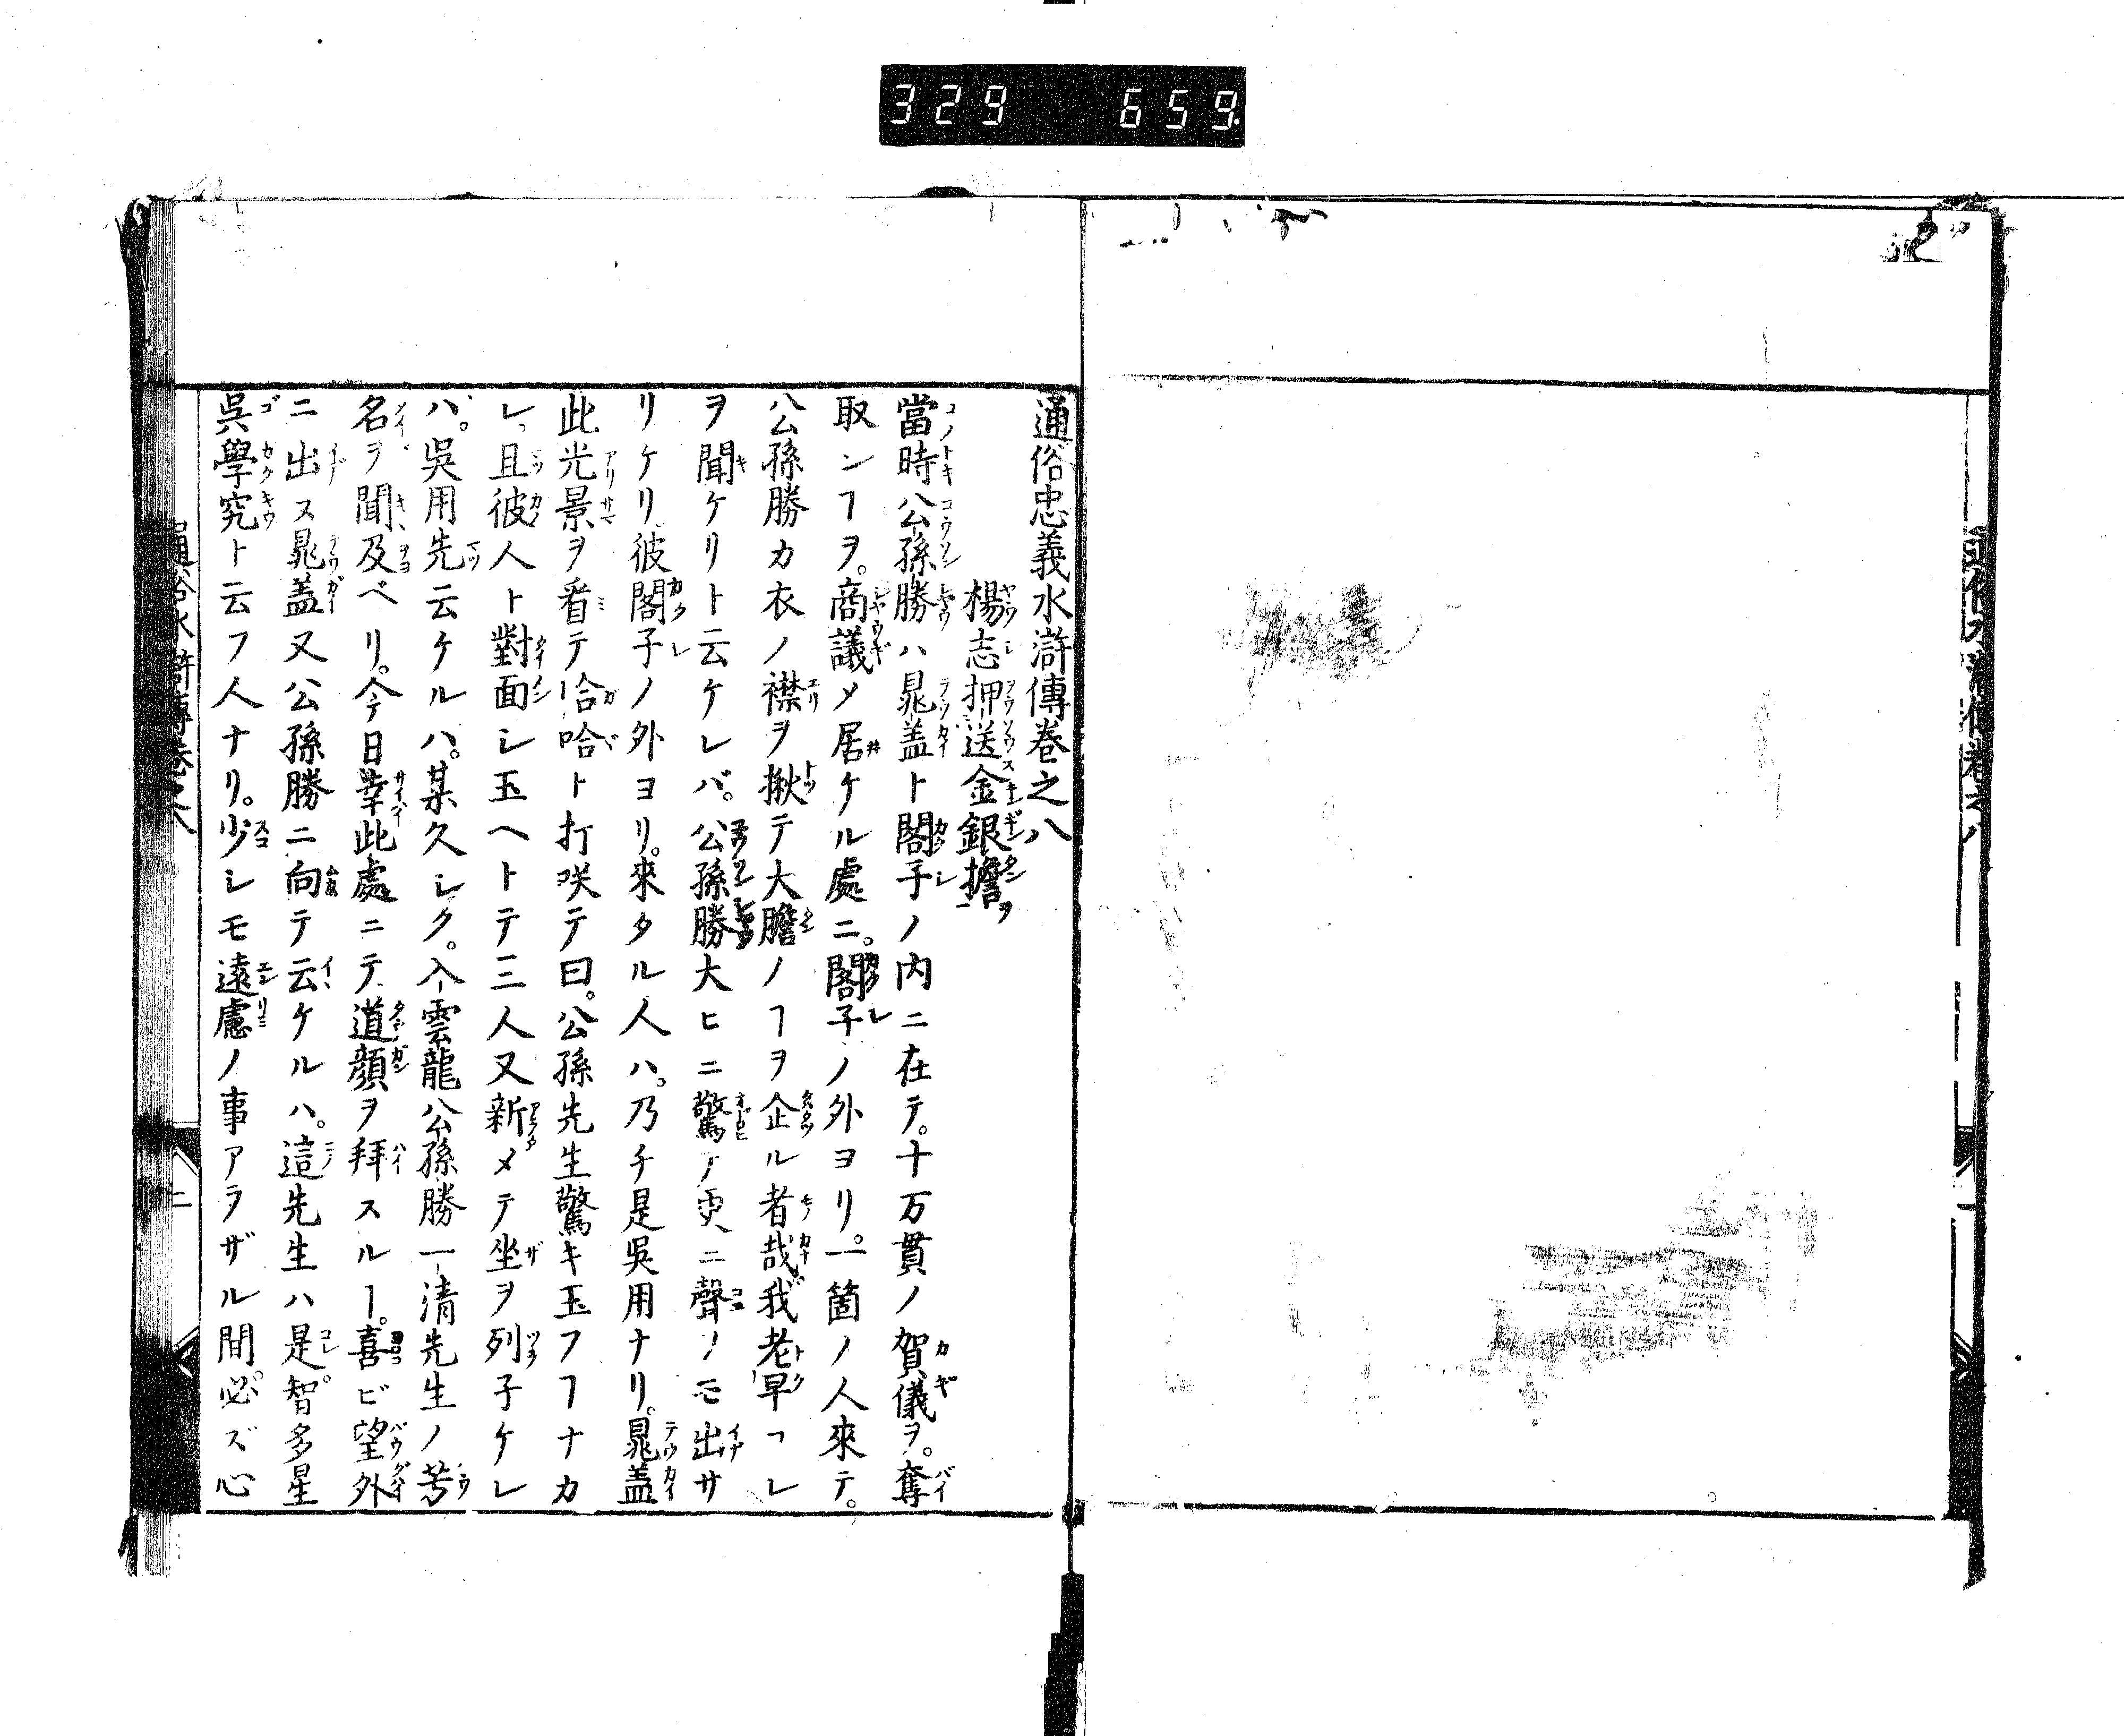 329 659
通俗忠義水滸傳巻之八
楊志押送金銀擔ヲ
當時公孫勝ハ晁盖ト閣子ノ内ニ在テ。十万貫ノ賀儀ヲ。奪
取ンヿヲ。商議メ居ケル處ニ。閣子ノ外ヨリ。一箇ノ人來テ。
公孫勝カ衣ノ襟ヲ揪テ大膽ノヿヲ企ル者哉我老早コレ
ヲ聞ケリト云ケレバ。公孫勝大ヒニ驚テ更ニ聲ノモ出サ
リケリ彼閣子ノ外ヨリ。來タル人ハ。乃チ是吳用ナリ。晁盖
此光景ヲ看テ哈哈ト打咲テ曰。公孫先生驚キ玉フヿナカ
レ。且彼人ト對面シ玉ヘトテ三人又新メテ坐ヲ列子ケレ
ハ。吳用先云ケルハ。某久シク。入雲龍公孫勝一清先生ノ芳
名ヲ聞及ベリ。今日幸此處ニテ道顔ヲ拜スルヿ。喜ビ望外
ニ出ス晁盖又公孫勝ニ向テ云ケルハ。這先生ハ是智多星
吳學究ト云フ人ナリ。少シモ遠慮ノ事アラザル間。必ズ心
通俗水滸傳巻之八